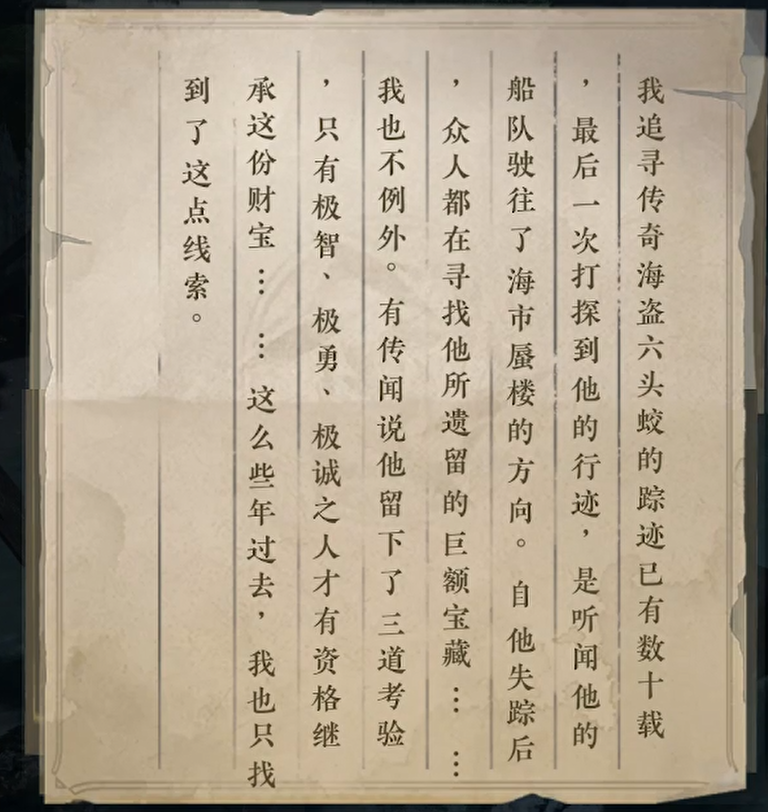 我追寻传奇海盗六头蛟的踪迹已有数十载
，最后一次打探到他的行迹，是听闻他的
船队驶往了海市蜃楼的方向。自他失踪后
，众人都在寻找他所遗留的巨额宝藏……
我也不例外。有传闻说他留下了三道考验
，只有极智、极勇、极诚之人才有资格继
承这份财宝……这么些年过去，我也只找
到了这点线索。